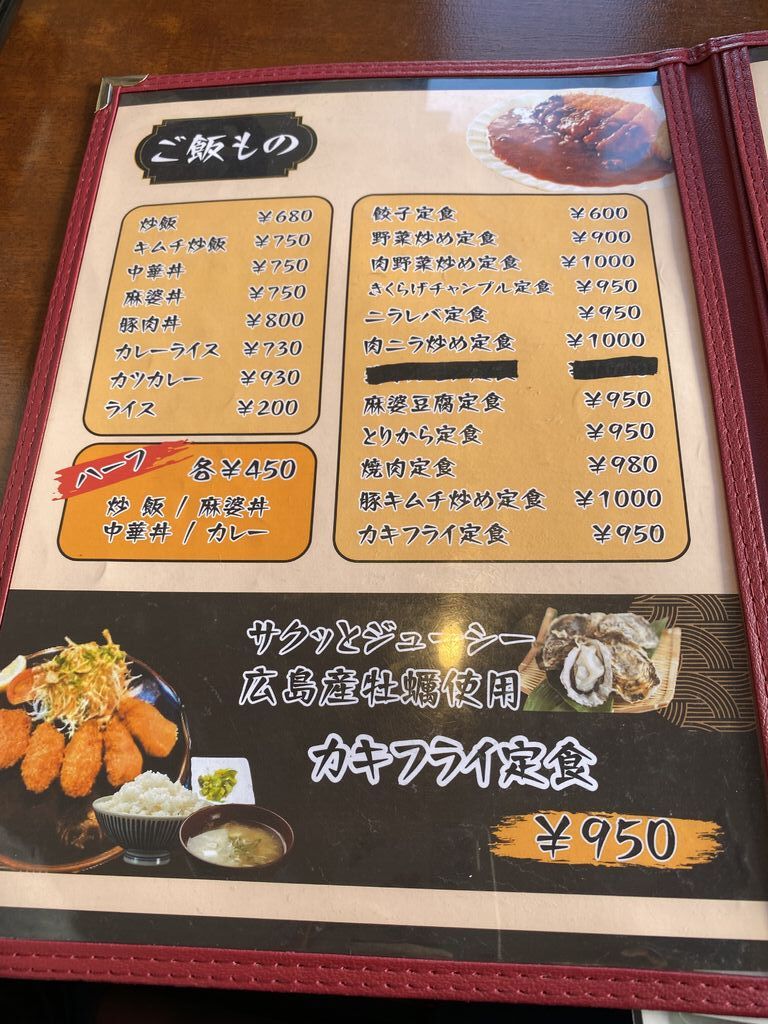 ご飯もの
炒飯 ¥680
キムチ炒飯 ¥750
中華丼 ¥750
麻婆丼 ¥750
豚肉丼 ¥800
カレーライス ¥730
カツカレー ¥930
ライス ¥200
ハーフ 各¥450
炒飯 / 麻婆丼
中華丼 / カレー
餃子定食 ¥600
野菜炒め定食 ¥900
肉野菜炒め定食 ¥1000
きくらげチャンプル定食 ¥950
ニラレバ定食 ¥950
肉ニラ炒め定食 ¥1000
麻婆豆腐定食 ¥950
とりから定食 ¥950
焼肉定食 ¥980
豚キムチ炒め定食 ¥1000
カキフライ定食 ¥950
サクッとジューシー
広島産牡蠣使用
カキフライ定食
¥950